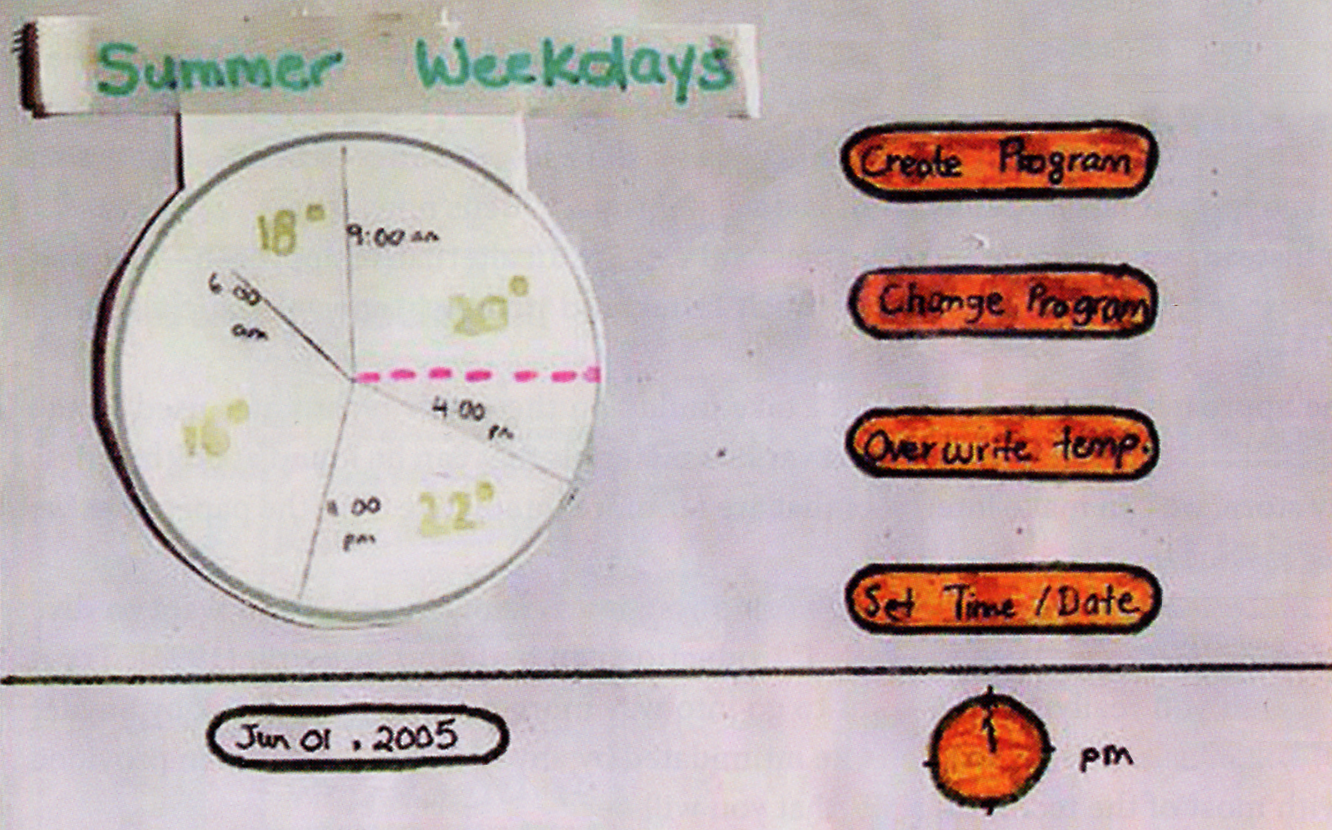 Summer Weekdays
18°
9:00 am
6:00
am
20°
4:00
pm
16°
:00
pm
22°
Create Program
Change Program
Overwrite temp.
Set Time / Date
Jun 01, 2005
pm